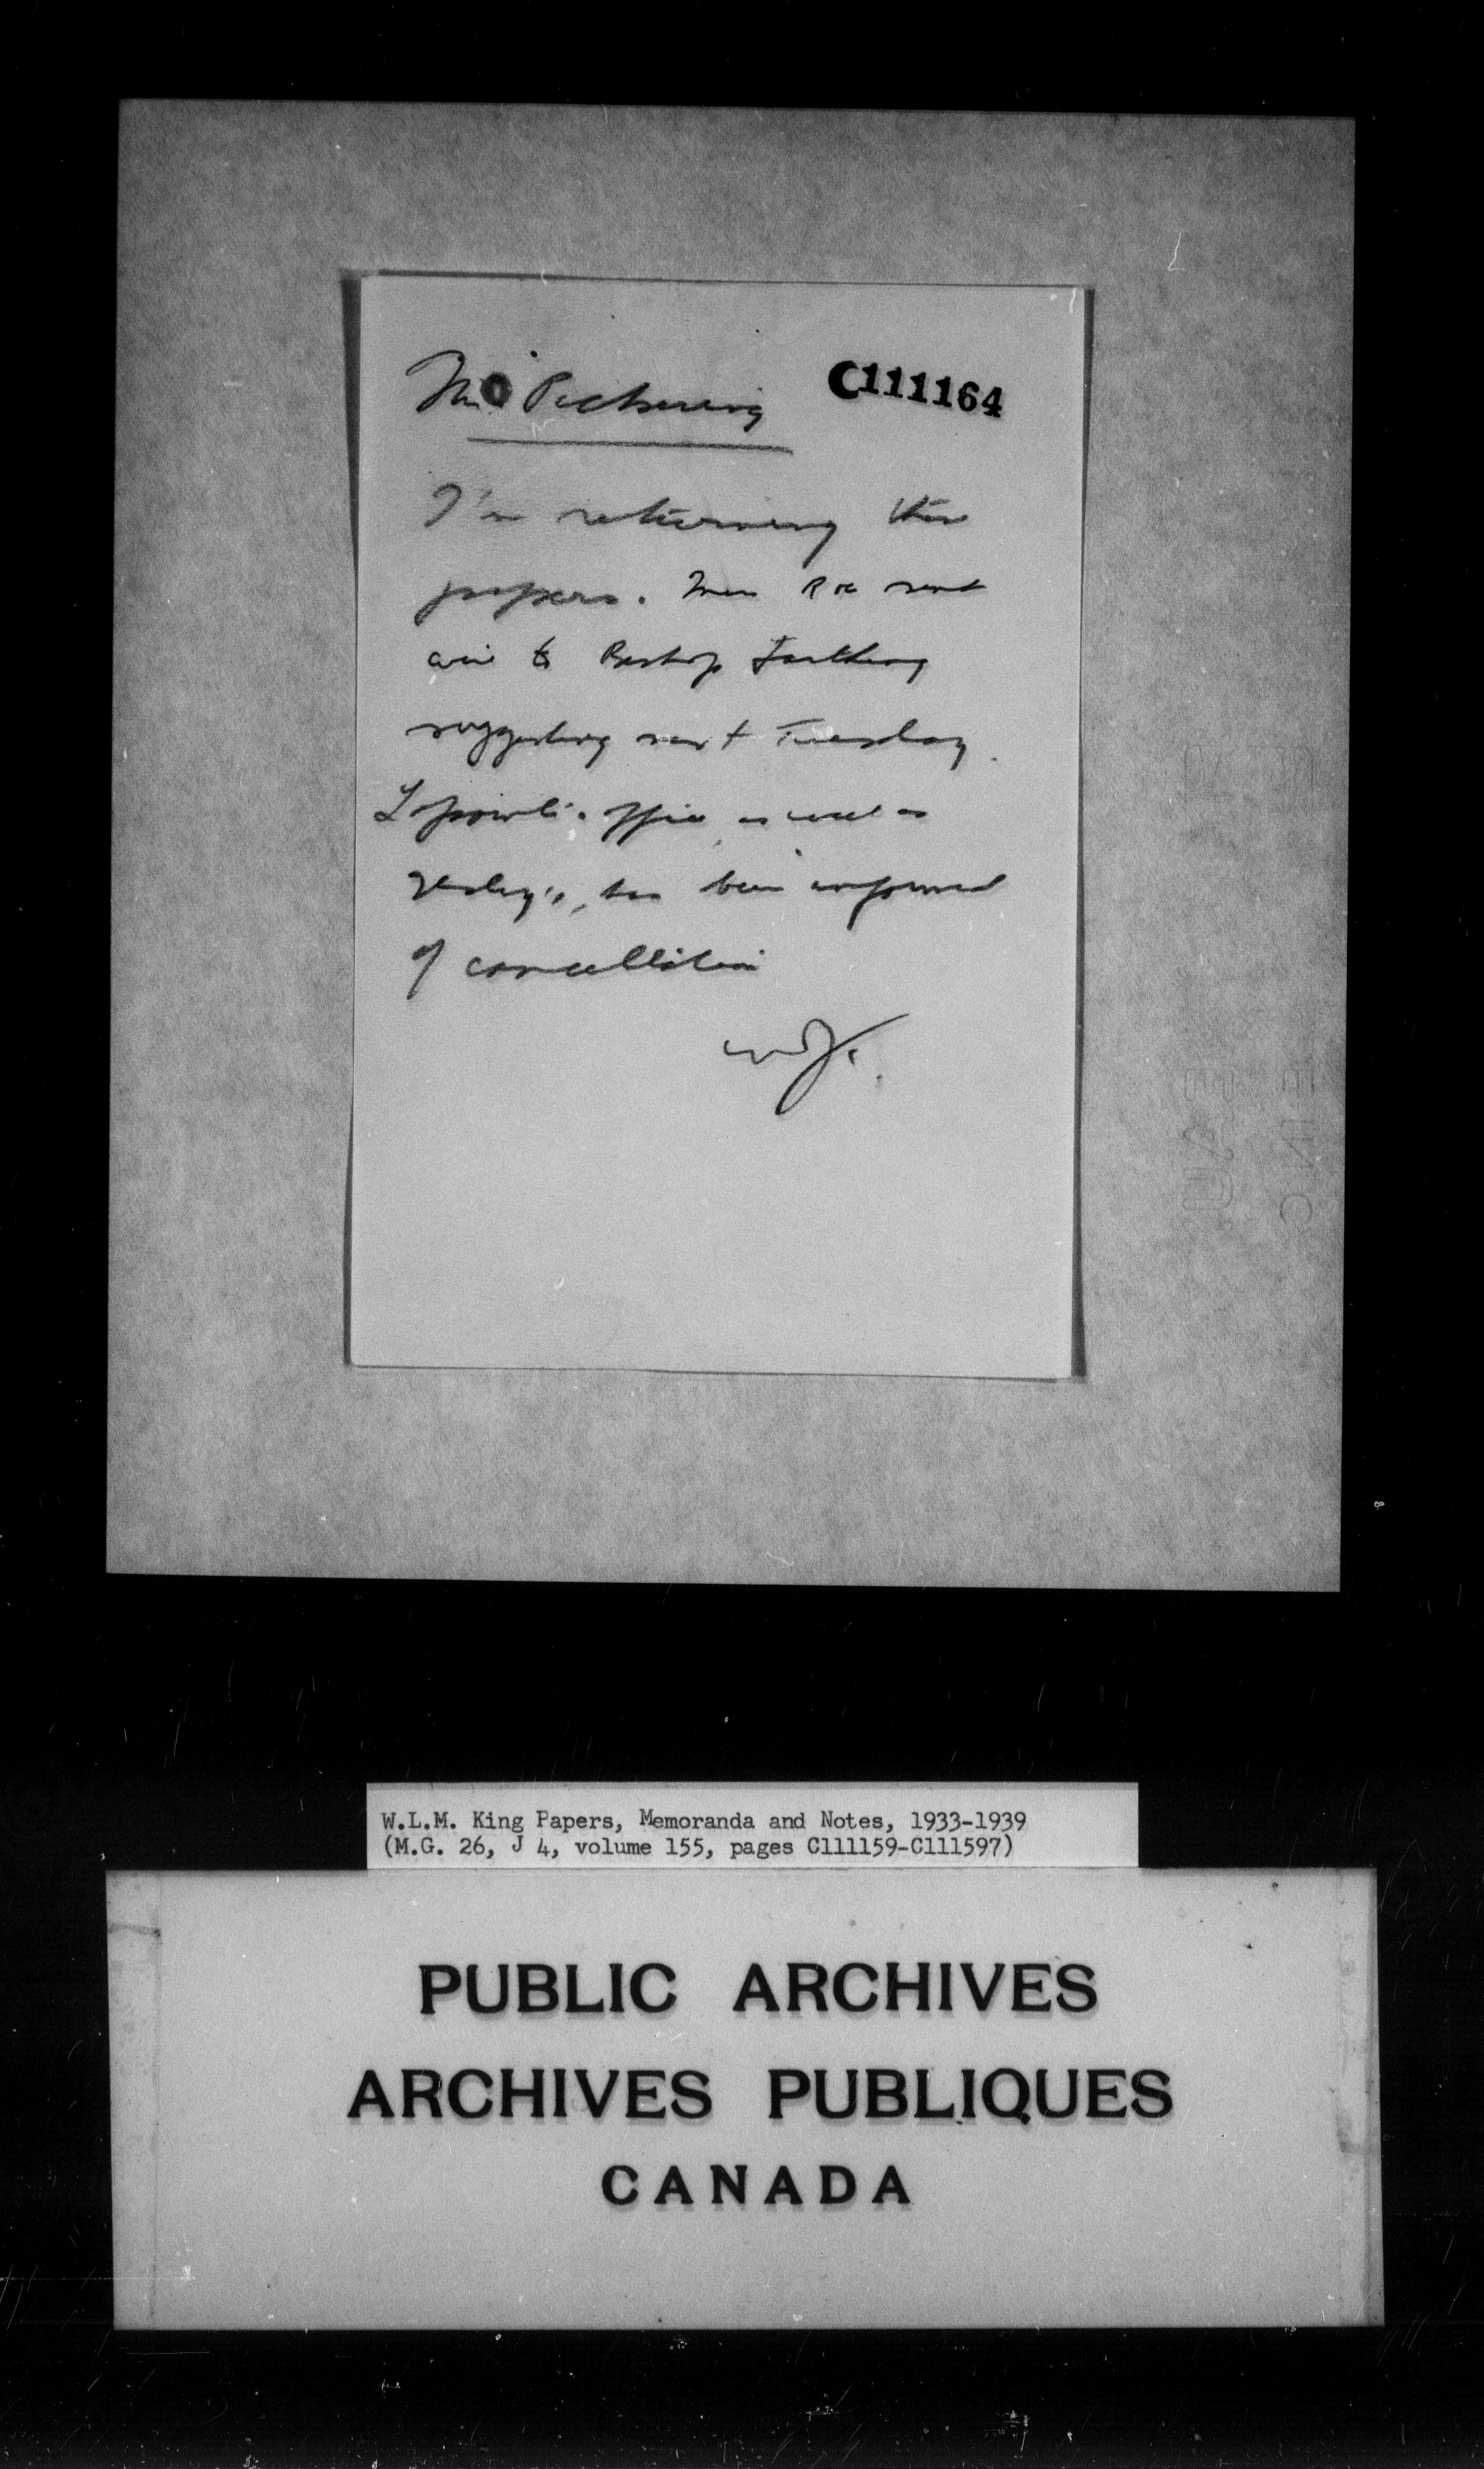 Pickering
C111164
I'm returning these
papers. Miss Roe sent
wire to Bishop Farthing
suggesting next Tuesday.
Lapointe's office, as well as
has been informed
of cancellation
W.L.M. King Papers, Memoranda and Notes, 1933-1939
(M.G. 26, J 4, volume 155, pages C111159-C111597)
PUBLIC ARCHIVES
ARCHIVES PUBLIQUES
CANADA